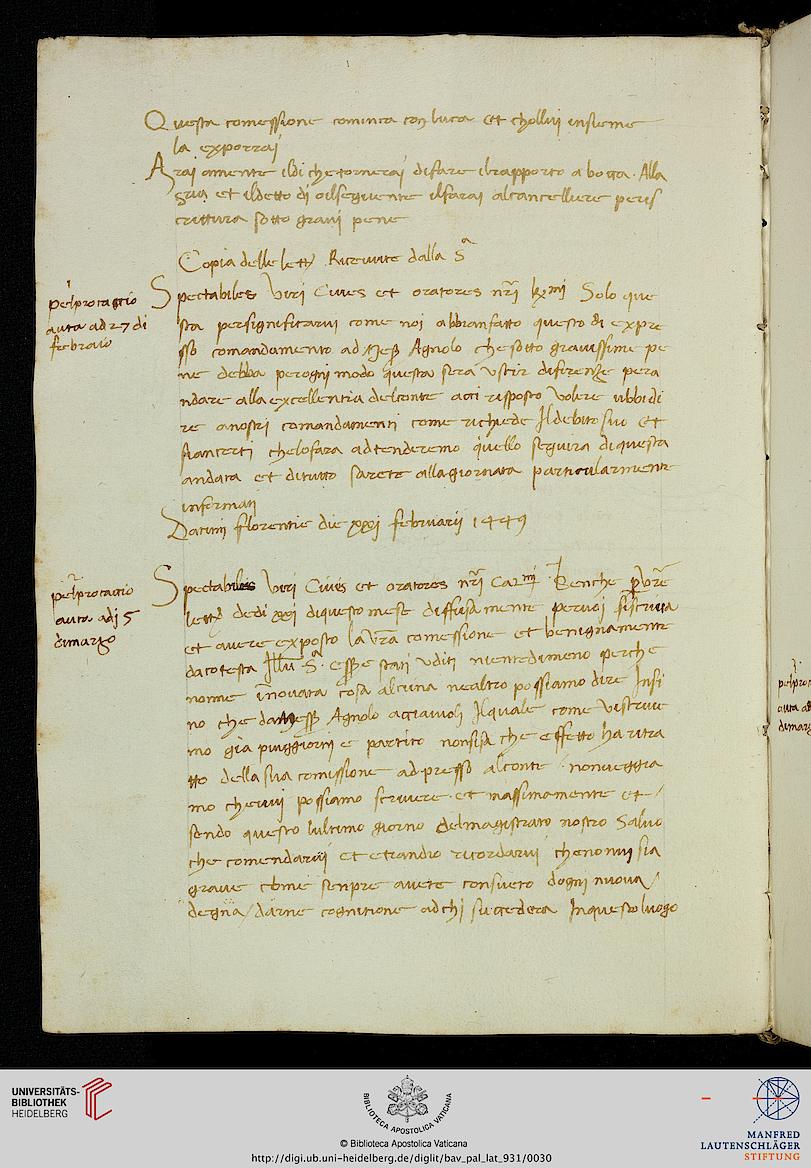 Questa comessione cominca con luca et chollui insieme
la exporrai
Arai amente ildi che tornerai difare ilrapporto a bocca. Alla
Sria et ildetto di oilseguente ilfarai alcancelliere peris
crittura sotto gravi pene
Copia delle lett Ricevute dalla Sa
pelprocaccio
auta ad 27 di
febraio
Spectabiles Viri Cives et oratores nri kmi Solo que
sta persignificarvi come noi abbianfatto questo di expre
sso comandamento ad Messr Agnolo che sotto gravissime pe
ne debba perogni modo questa sera Uscir difirenze pera
ndare alla excellentia delconte acci risposto Volere ubbidi
re anostri comandamenti come richiede Ildebito suo Et
siancerti chelofara adtenderemo quello seguira diquesta
andata et ditutto sarete allagiornata particularmente
informati
Datum florentie die xxj februarij 1449
pelprocaccio
auta adj 5
dimarzo
Spectabiles Viri Cives et oratores nri Carmi. Benche p vre
lett dedi xxj diquesto mese diffusamente pervoj siscriva
et avere exposto la vra comessione et benignamente
dacotesta Illu Sa. essere stati Uditi nientedimeno perche
nonne innovata cosa alcuna nealtro possiamo dire Insi
no che da Messr Agnolo acciaiuoli Ilquale come Viscrive
mo gia piuggiorni e partito nonsisa che effetto ha ritra
tto della sua comissione adpresso alconte. nonveggia
mo chevvi possiamo scrivere. et massimamente et/
sendo questo lultimo giorno delmagistrato nostro Salvo
che comendarvi Et etiandio ricordarvi chenonvi sia
grave come senpre avete consueto dogni nuova/
degna/darne cognitione adchi succedera Inquesto luogo
pelproc
auta ad
dimarz
UNIVERSITÄTS-
BIBLIOTHEK
HEIDELBERG
BIBLIOTECA APOSTOLICA VATICANA
© Biblioteca Apostolica Vaticana
http://digi.ub.uni-heidelberg.de/diglit/bav_pal_lat_931/0030
MANFRED
LAUTENSCHLÄGER
STIFTUNG